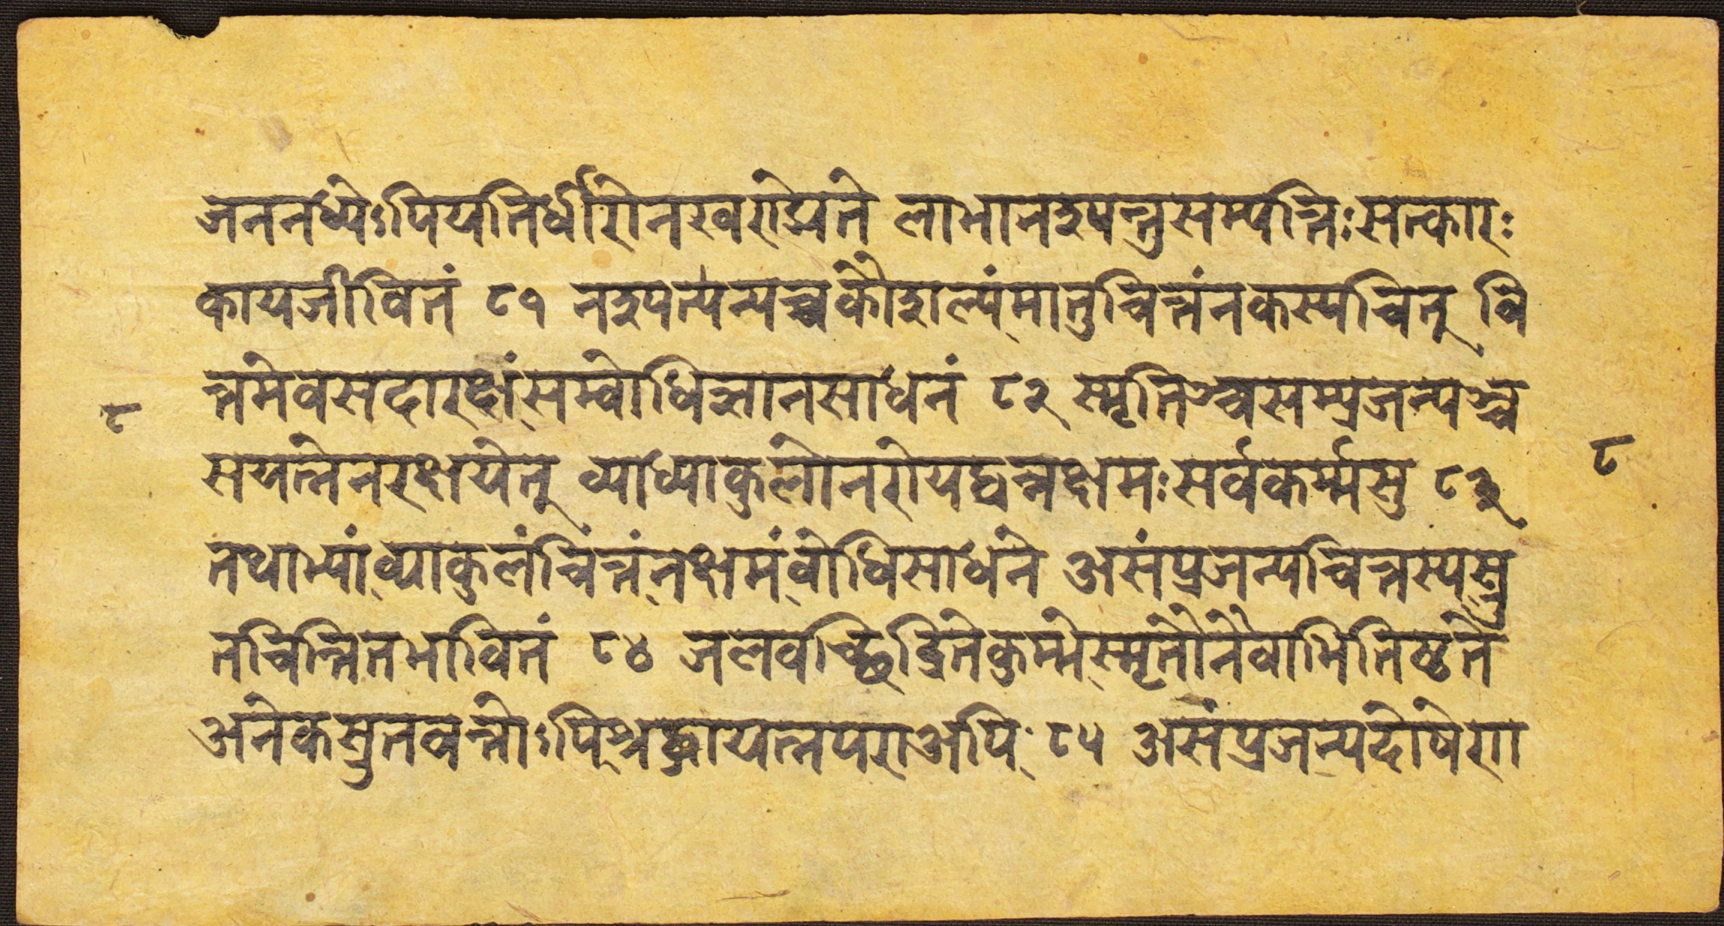 जनमध्येऽपियतिर्धीरोनखणेद्यते लाभानश्यन्तुसम्पत्तिःसत्कारः
कायजीवितं ८१ नश्यत्यन्यच्चकौशल्यंमातुचित्तंनकस्यचित् चि
त्तमेवसदारक्षांसम्वोधिज्ञानसाधनं ८२ स्मृतिञ्चसम्प्रजन्यञ्च
सयत्नेनरक्षयेत् व्याध्याकुलोनरोयद्वन्नक्षमःसर्वकर्म्मसु ८३
तथाभ्यांव्याकुलंचित्तंनक्षमंवोधिसाधने असंप्रजन्यचित्तस्यस्रु
तचिन्तितभावितं ८४ जलवच्छिद्रितेकुम्भेस्मृतौनैवाभितिष्ठते
अनेकस्रुतवन्तोऽपिश्रद्धायत्नपराअपि ८५ असंप्रजन्यदोषेण
८
८